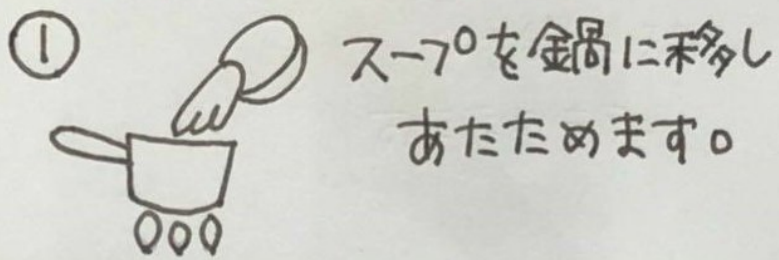 ①
スープを鍋に移し
あたためます。